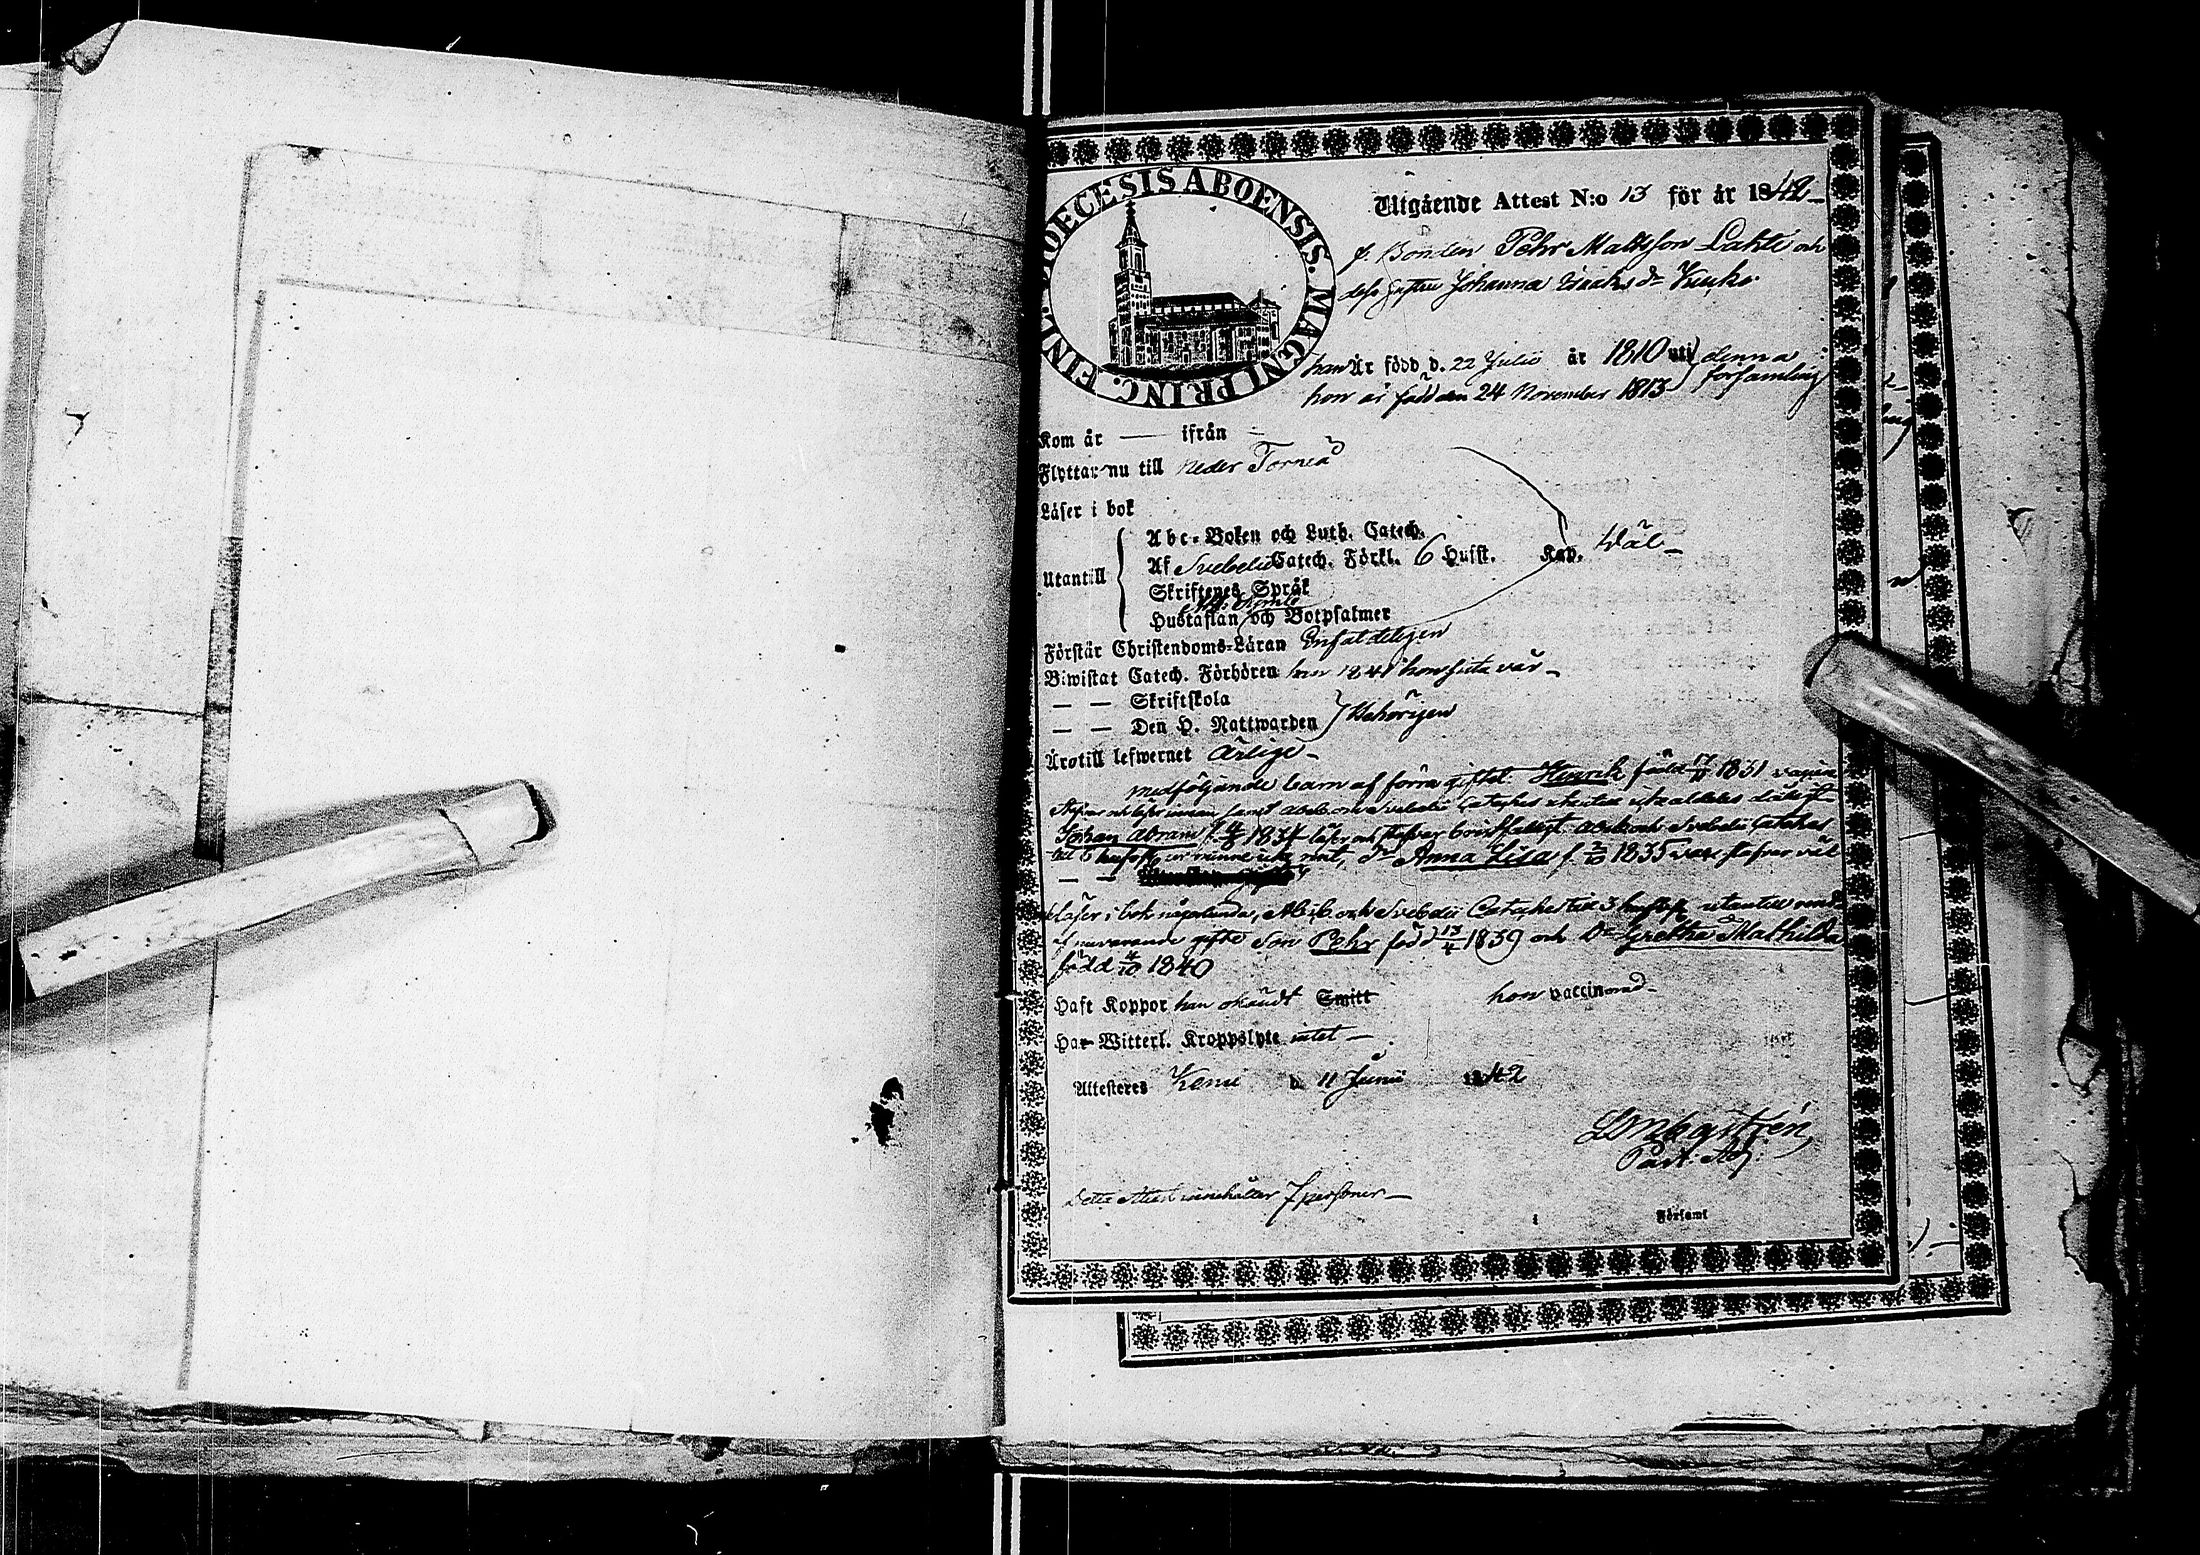 DIOECESIS ABOENSIS. MAGNI PRINC. FINL.
Utgående Attest N:o 13 för år 1842
f. Bonden Pehr Mattsson Lahti och
dess hustru Johanna Isaks dr
han Är född d. 22 Julii år 1810 uti denna
hon är född den 24 November 1813 församling
Kom år — ifrån —
Flyttar nu till Neder Torneå
Läser i bok
Utantill
Abc-Boken och Luth. Catech.
Af Svebelii Catech. Förkl. 6 Hufst. Kap. Wäl
Skriftenes Språk
Hustaflan och Botpsalmer
Förstår Christendoms-Läran Enfaldeligen
Biwistat Catech. Förhören han 1841 hon sista vår
— — Skriftskola
— — Den H. Nattwarden Behörigen
Årotill lefwernet ärlige
medföljande barn af förra giftet Henrik född 1831
Johan Abram f. 1834 läser och stafvar bristfälligt, abcbok och Svebelii Cateches
till 5 dr Anna Lisa f. 1835 stafvar väl
— —
läser i bok någorlunda, Abcb och Svebelii Cateches till 3 utantill
af nuvarande gifte Son Pehr född 13/4 1839 och Dr Gretha Mathilda
född 4/10 1840
Haft Koppor han Smitt hon vaccinerad
Har Witterl. Kroppslyte intet
Attesteras Kemi d. 11 Junii 1842
Past. Adj.
Detta Attest innehåller 7 personer
i Församl